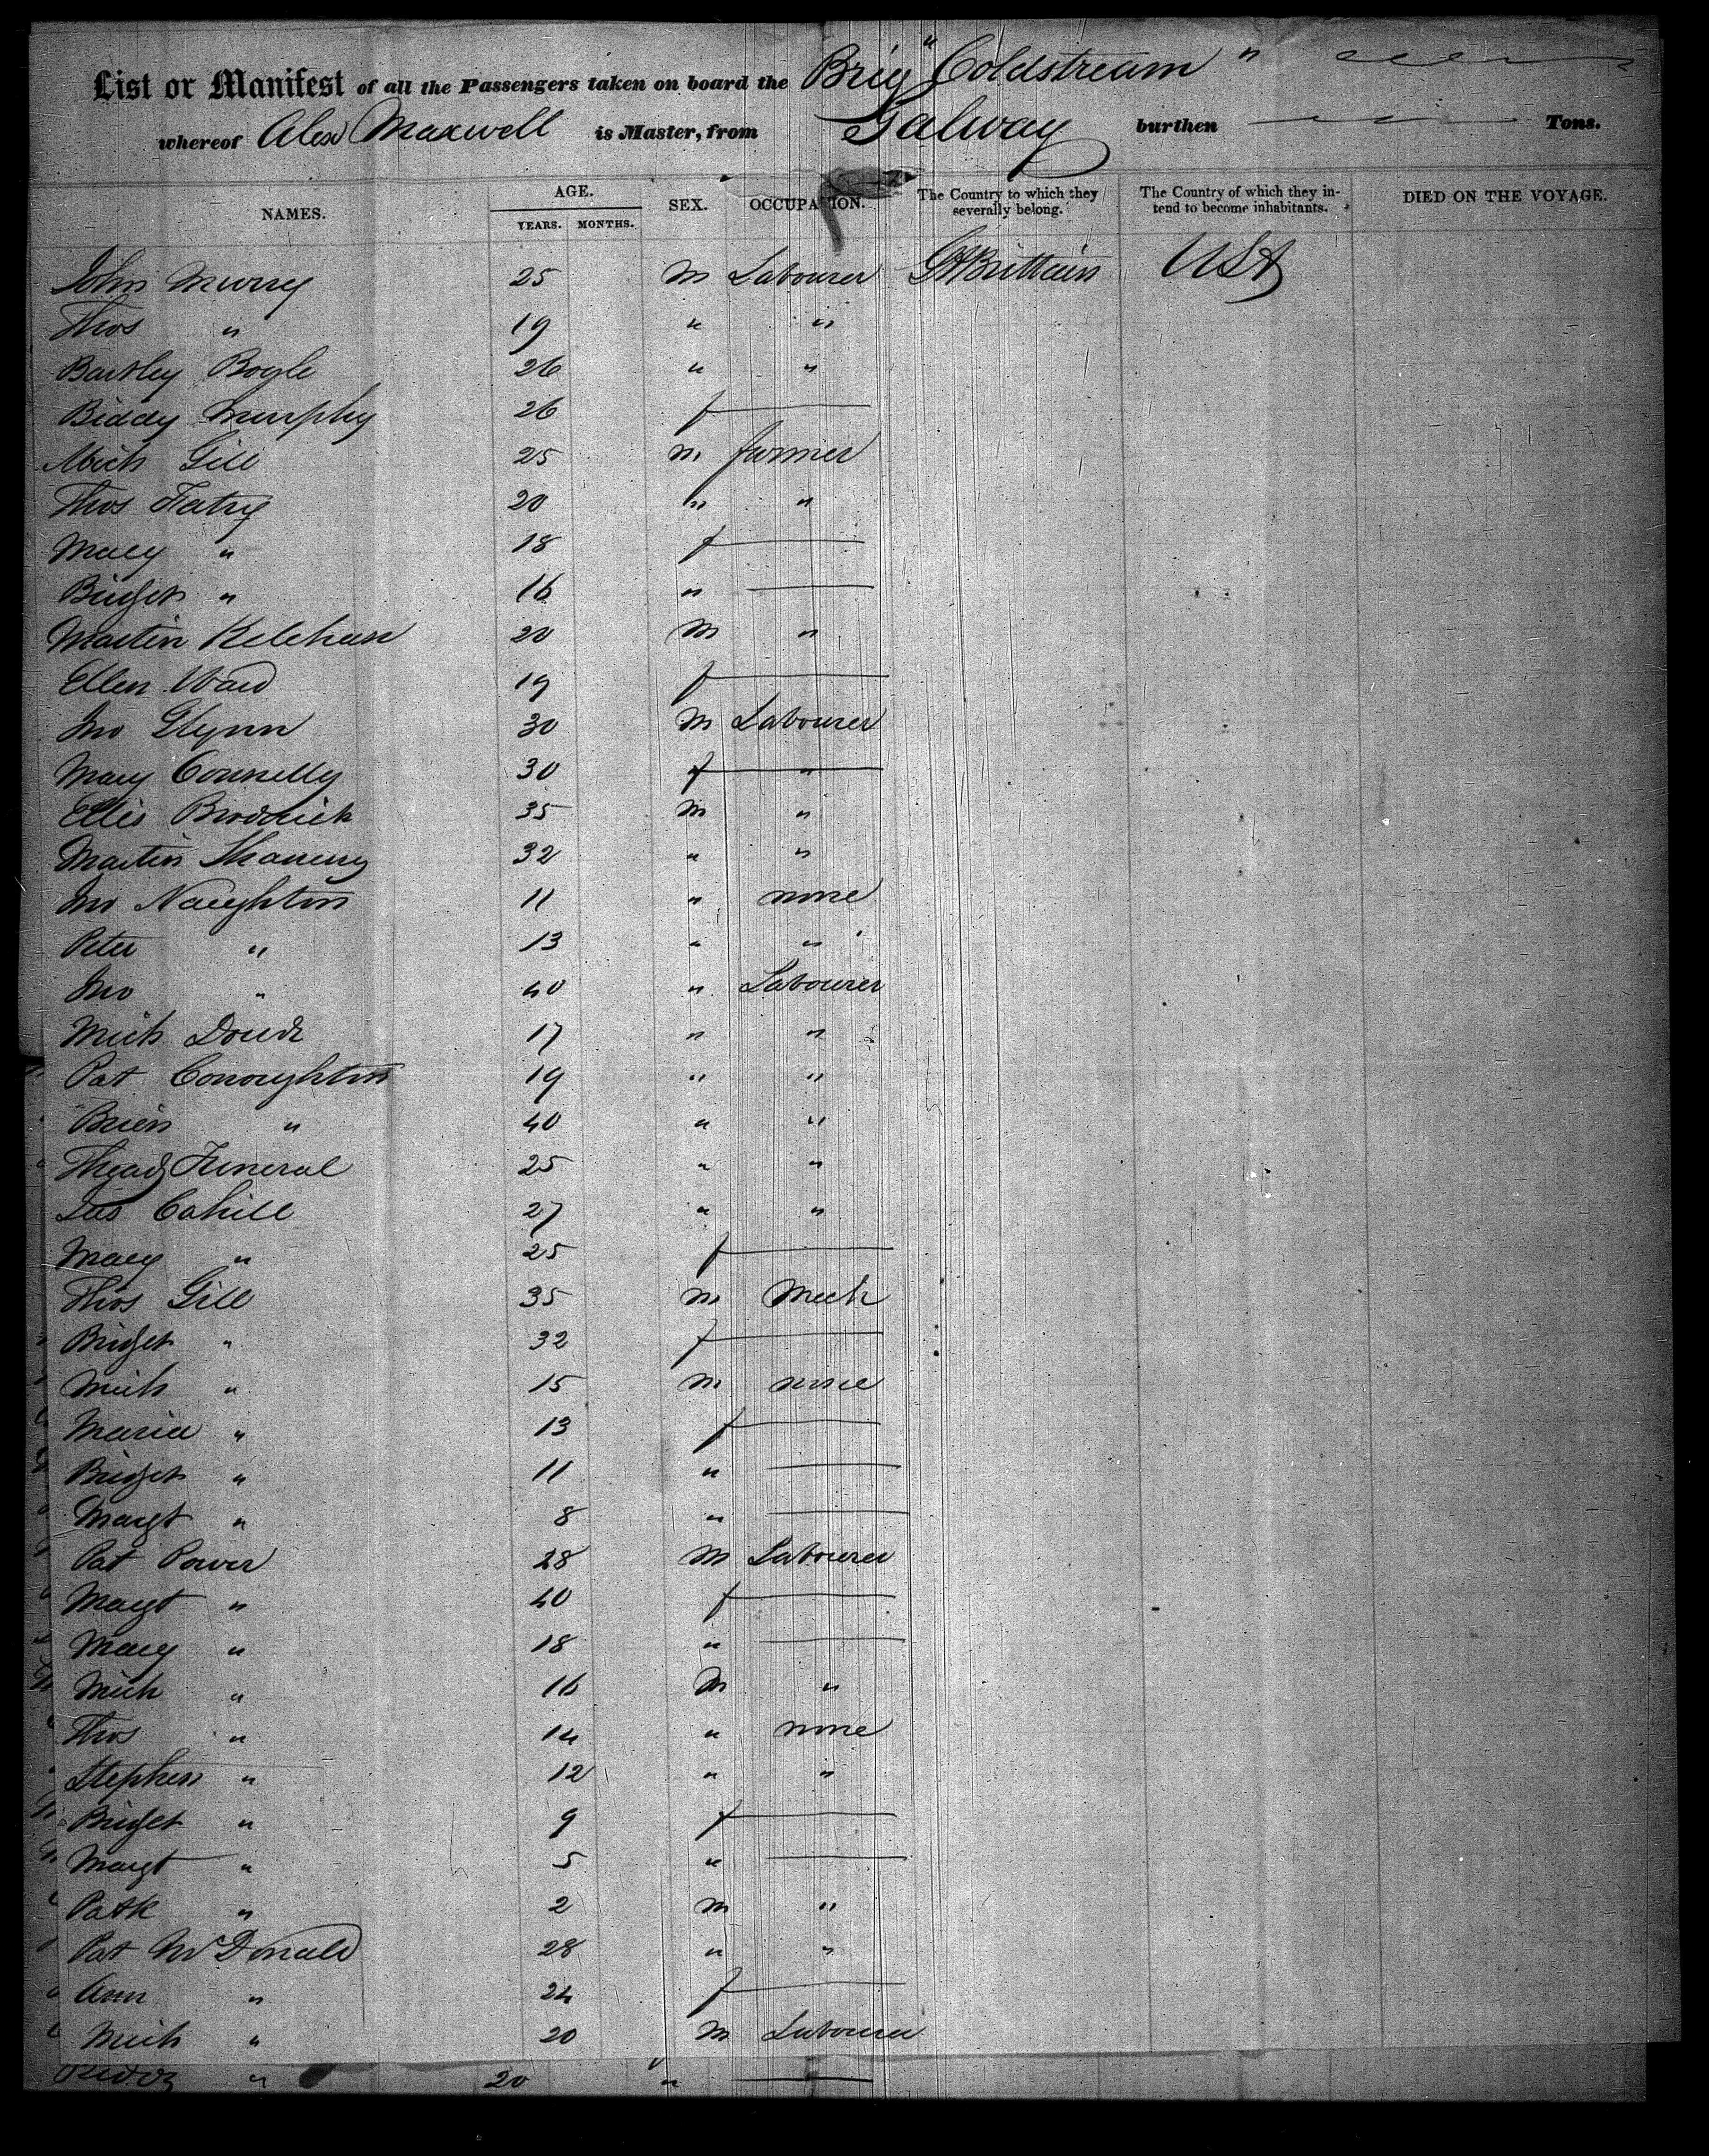 List or Manifest of all the Passengers taken on board the Brig "Coldstream"
whereof Alex Maxwell is Master, from Galway burthen Tons.
NAMES. AGE. YEARS. MONTHS. SEX. OCCUPATION. The Country to which they severally belong. The Country of which they intend to become inhabitants. DIED ON THE VOYAGE.
John Murry 25 M Labourer Gt Brittain USA
Thos " 19 " "
Bartley Bogle 26 " "
Biddy Murphy 26 f
Mich Gill 25 M farmer
Thos Fahy 20 " "
Mary " 18 f
Bridget " 16 "
Martin Kelehan 20 M "
Ellen Ward 19 f
Jno Glynn 30 M Labourer
Mary Connelly 30 f "
Ellis Brodrick 35 M "
Martin 32 " "
Jno Naughton 11 " none
Peter " 13 " "
Jno " 40 " Labourer
Mich 17 " "
Pat Conoughton 19 " "
Brien " 40 " "
Funeral 25 " "
Jas Cahill 27 " "
Mary " 25 f
Thos Gill 35 M Mech
Bridget " 32 f
Mich " 15 M none
Maria " 13 f
Bridget " 11 "
Margt " 8 "
Pat Power 28 M Labourer
Margt " 40 f
Mary " 18 "
Mich " 16 M "
Thos " 14 " none
Stephen " 12 " "
Bridget " 9 f
Margt " 5 "
Patk " 2 M "
Pat McDonald 28 " "
Ann " 24 f
Mich " 20 M Labourer
" 20 "